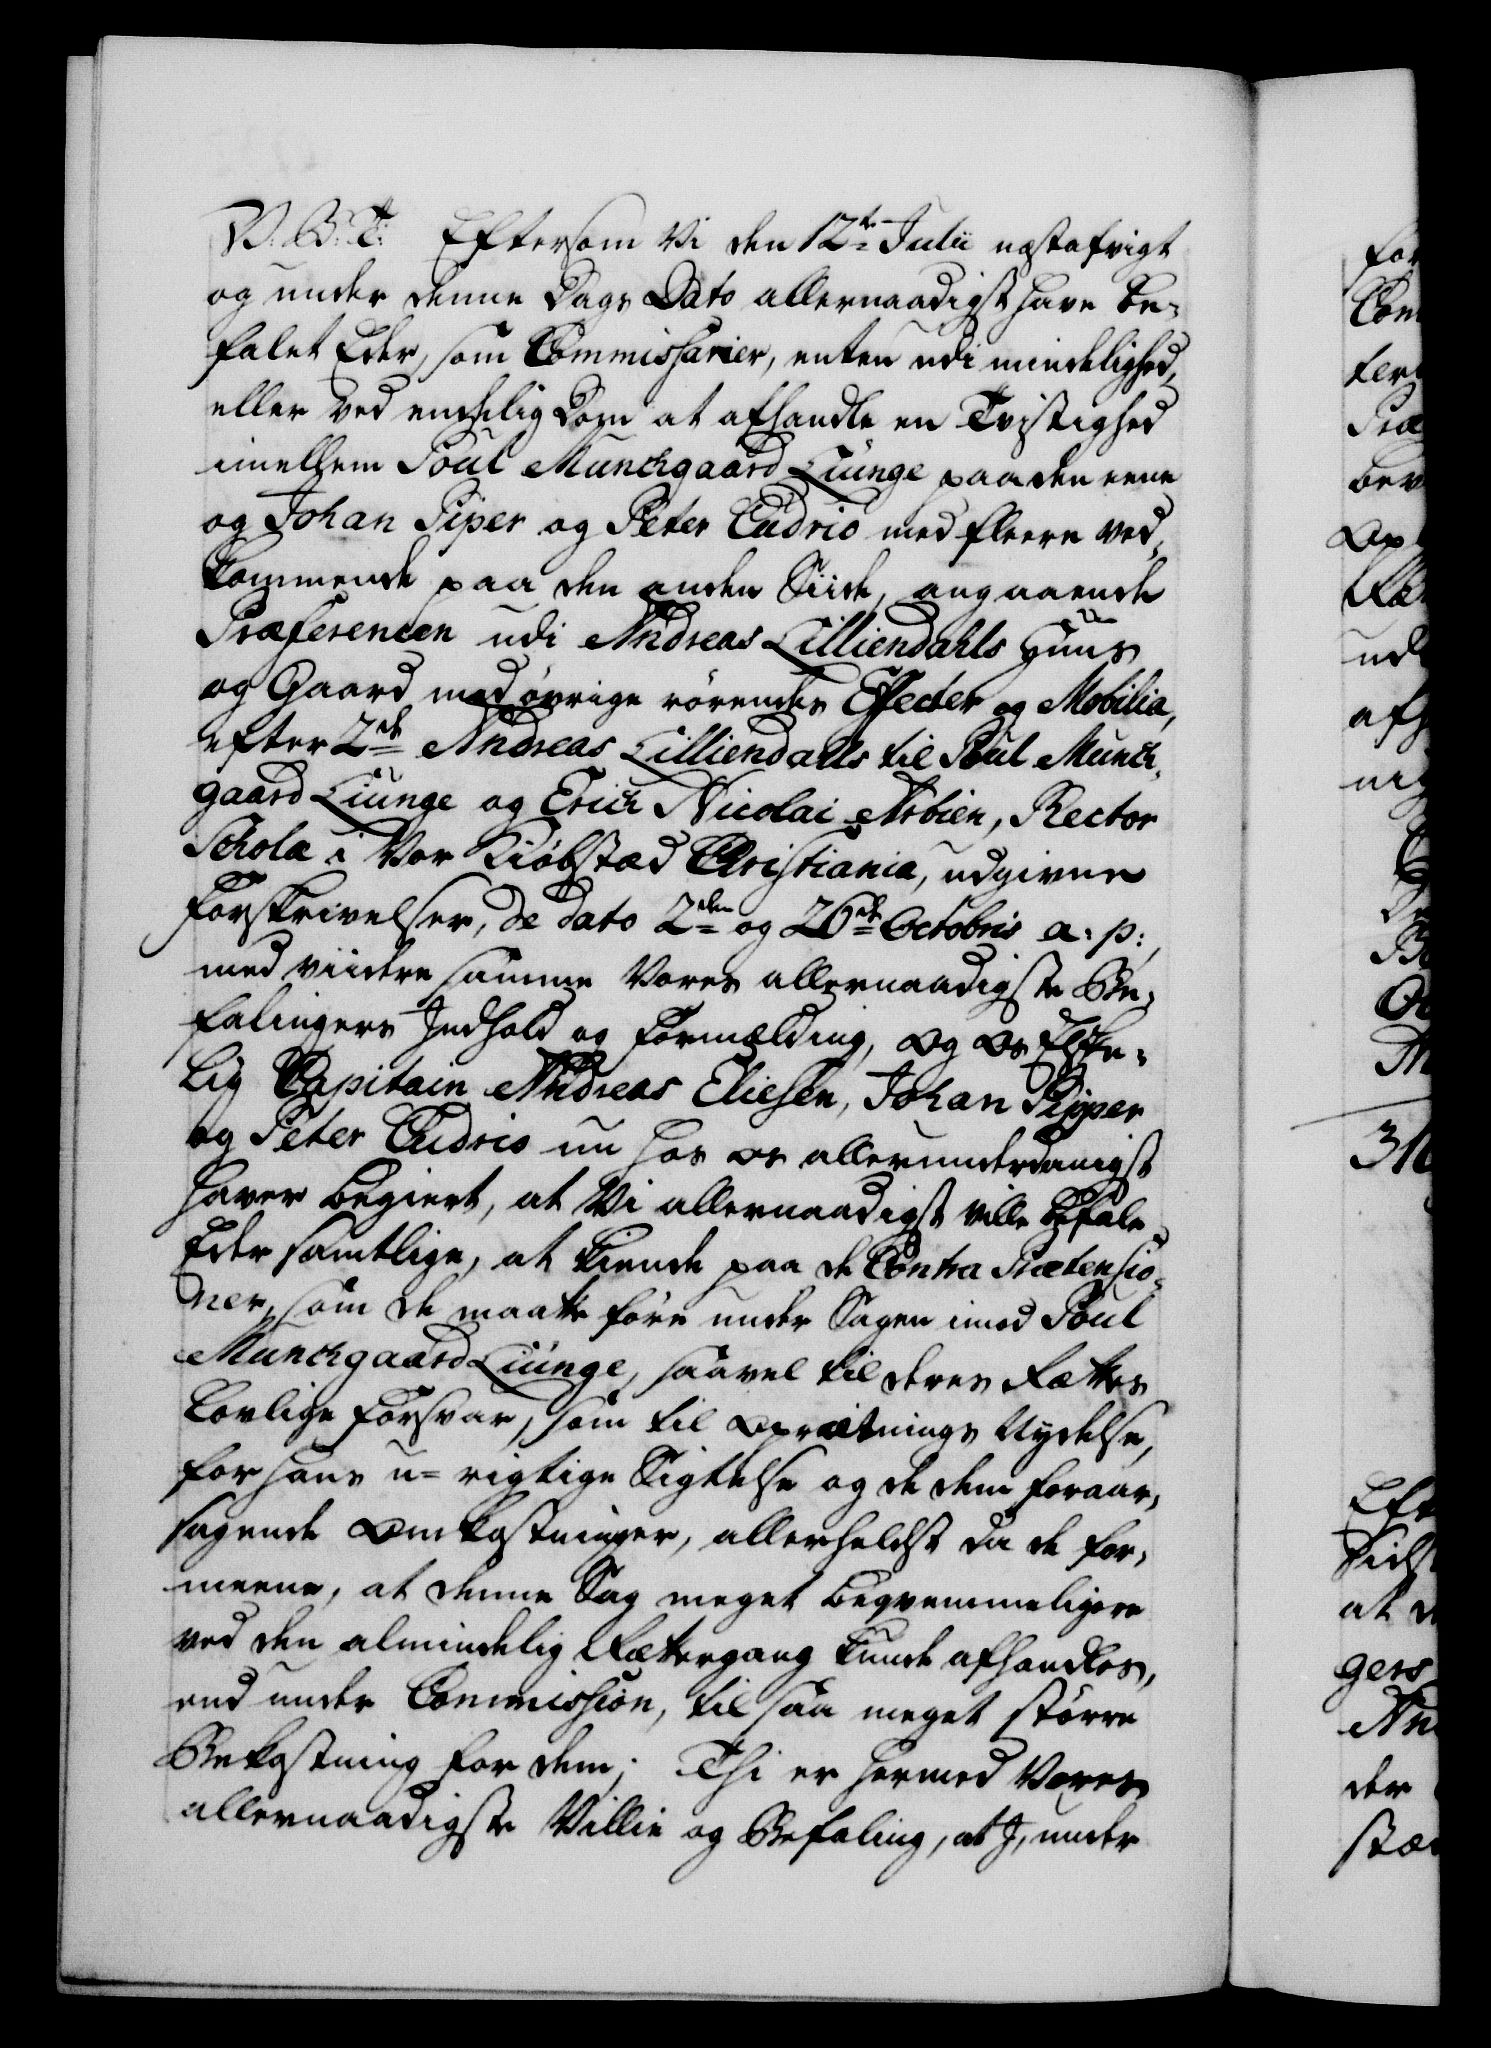 V. G. T. Eftersom Vi den 12te Julii næstafvigt
og under denne Dags Dato allernaadigst have be-
falet Eder, som Commissarier, enten udi mindelighed,
eller ved endelig Dom at afhandle en Tvistighed
imellem Poul Munchgaard Liunge paa den eene
og Johan Piper og Peter Cudrio med fleere ved-
kommende paa den anden Siide, angaaende
Præferencen udi Andreas Lilliendahls Huus
og Gaard med øvrige rørendes Effecter og Mobilia,
efter 2de Andreas Lilliendahls til Poul Munch-
gaard Liunge og Erich Nicolai Arbien, Rector
Scholæ i Vor Kiøbstæd Christiania, udgivne
Forskrivelser, de dato 2den og 26de Octobris a: p:,
med viidere samme Vores allernaadigste Be-
falingers Indhold og Formælding, og os Elske-
lig Capitain Andreas Eliesen, Johan Pipper
og Peter Cudrio nu hos os allerunderdanigst
haver begiert, at Vi allernaadigst ville befale
Eder samtlige, at kiende paa de Contra Prætensio-
ner, som de maatte føre under Sagen imod Poul
Munchgaard Liunge, saavel til deres Rættes
Lovlige Forsvar, som til Oprætnings Nydelse,
for hans u-rigtige Sigtelse og de dem foraar-
sagende Omkostninger, allerheldst da de for-
meene, at denne Sag meget beqvemmeligere
ved den almindelig Rættergang kunde afhandles,
end under Commission, til saa meget større
Bekostning for dem; Thi er hermed Vores
allernaadigste Villie og Befaling, at I, under